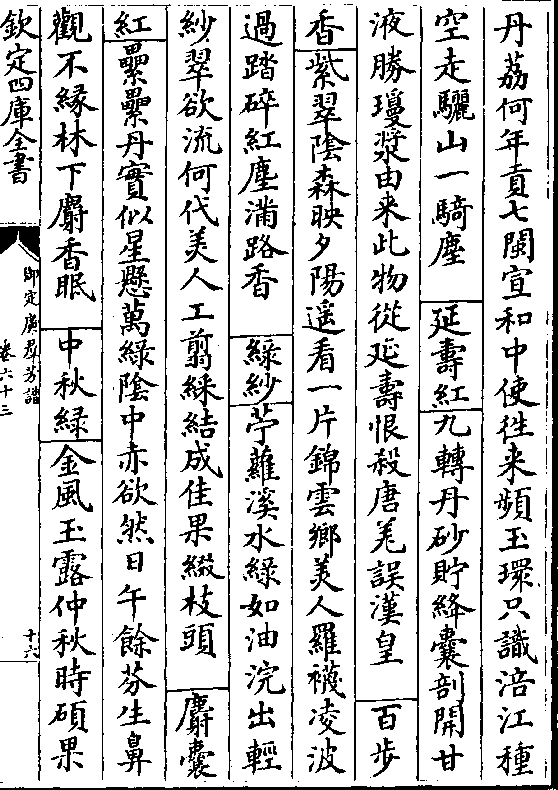 丹荔何年貢七閩宣和中使徃来頻玉環只識涪江種
空走驪山一騎塵 延壽紅九轉丹砂貯絳囊剖開甘
液勝瓊漿由来此物從延壽恨殺唐羌誤漢皇 百步
香紫翠陰森映夕陽遥看一片錦雲鄉美人羅襪凌波
過踏碎紅塵滿路香 綠紗苧蘿溪水綠如油浣出輕
紗翠欲流何代美人工翦綵結成佳果綴枝頭 麝囊
紅纍纍丹實似星懸萬綠陰中赤欲然日午餘芬生鼻
觀不緣林下麝香眠 中秋綠金風玉露仲秋時碩果
欽定四庫全書
御定廣羣芳譜
卷六十三
十六